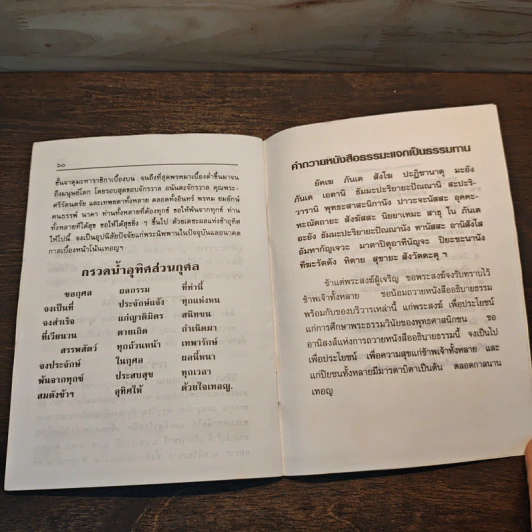 ๖๐
ชั้นจาตุมะหาราชิกาเบื้องบน จนถึงที่สุดพรหมาเบื้องต่ำขึ้นมาจน
ถึงมนุษย์โลก โดยรอบสุดขอบจักรวาล อนันตะจักรวาล คุณพระ-
ศรีรัตนตรัย และเทพยดาทั้งหลาย ตลอดทั้งอินทร์ พรหม ยมยักษ์
คนธรรพ์ นาคา ท่านทั้งหลายที่ต้องทุกข์ ขอให้พ้นจากทุกข์ ท่าน
ทั้งหลายที่ได้สุข ขอให้ได้สุขยิ่ง ๆ ขึ้นไป ด้วยเดชะผลแห่งข้าอุทิศ
ให้ไปนี้ จงเป็นอุปนิสัยปัจจัยแก่พระนิพพานในปัจจุบันและอนาคต
กาลเบื้องหน้าโน้นเทอญฯ
กรวดน้ำอุทิศส่วนกุศล
ขอกุศล ผลกรรม ที่ทำนี้
จงเป็นที่ ประจักษ์แจ้ง ทุกแห่งหน
จงสำเร็จ แก่ญาติมิตร สนิทชน
ที่เวียนวน ตายเกิด กำเนิดมา
สรรพสัตว์ ทุกถ้วนหน้า เทพารักษ์
จงประจักษ์ ในกุศล ผลนี้หนา
พ้นจากทุกข์ ประสบสุข ทุกเวลา
สมดังข้าฯ อุทิศให้ ด้วยใจเทอญ.
คำถวายหนังสือธรรมะแจกเป็นธรรมทาน
ยัคเฆ ภันเต สังโฆ ปะฏิชานาตุ มะยัง
ภันเต เอตานิ ธัมมะปะริยายะปัณณานิ สะปะริ-
วารานิ พุทธะสาสะนิกานัง ปาวะจะนัสสะ อุคคะ-
หะณัตถายะ สังฆัสสะ นิยยาเทมะ สาธุ โน ภันเต
อะยัง ธัมมะปะริยายะปัณณานัง ทานัสสะ อานิสังโส
อัมหากัญเจวะ มาตาปิตุอาทีนัญจะ ปิยะชะนานัง
ทีฆะรัตตัง หิตายะ สุขายะ สังวัตตะตุ ฯ
ข้าแต่พระสงฆ์ผู้เจริญ ขอพระสงฆ์จงรับทราบไว้
ข้าพเจ้าทั้งหลาย ขอน้อมถวายหนังสืออธิบายธรรม
พร้อมกับของบริวารเหล่านี้ แก่พระสงฆ์ เพื่อประโยชน์
แก่การศึกษาพระธรรมวินัยของพุทธศาสนิกชน ขอ
อานิสงส์แห่งการถวายหนังสืออธิบายธรรมนี้ จงเป็นไป
เพื่อประโยชน์ เพื่อความสุขแก่ข้าพเจ้าทั้งหลาย และ
แก่ปิยชนทั้งหลายมีมารดาบิดาเป็นต้น ตลอดกาลนาน
เทอญ